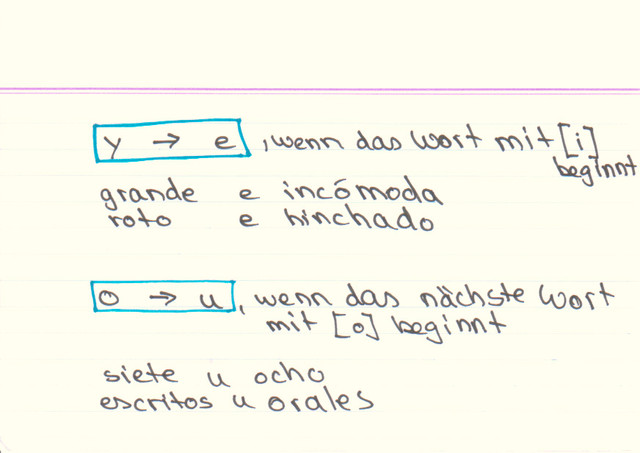 y → e, wenn das Wort mit [i]
beginnt
grande e incómoda
roto e hinchado
o → u, wenn das nächste Wort
mit [o] beginnt
siete u ocho
escritos u orales